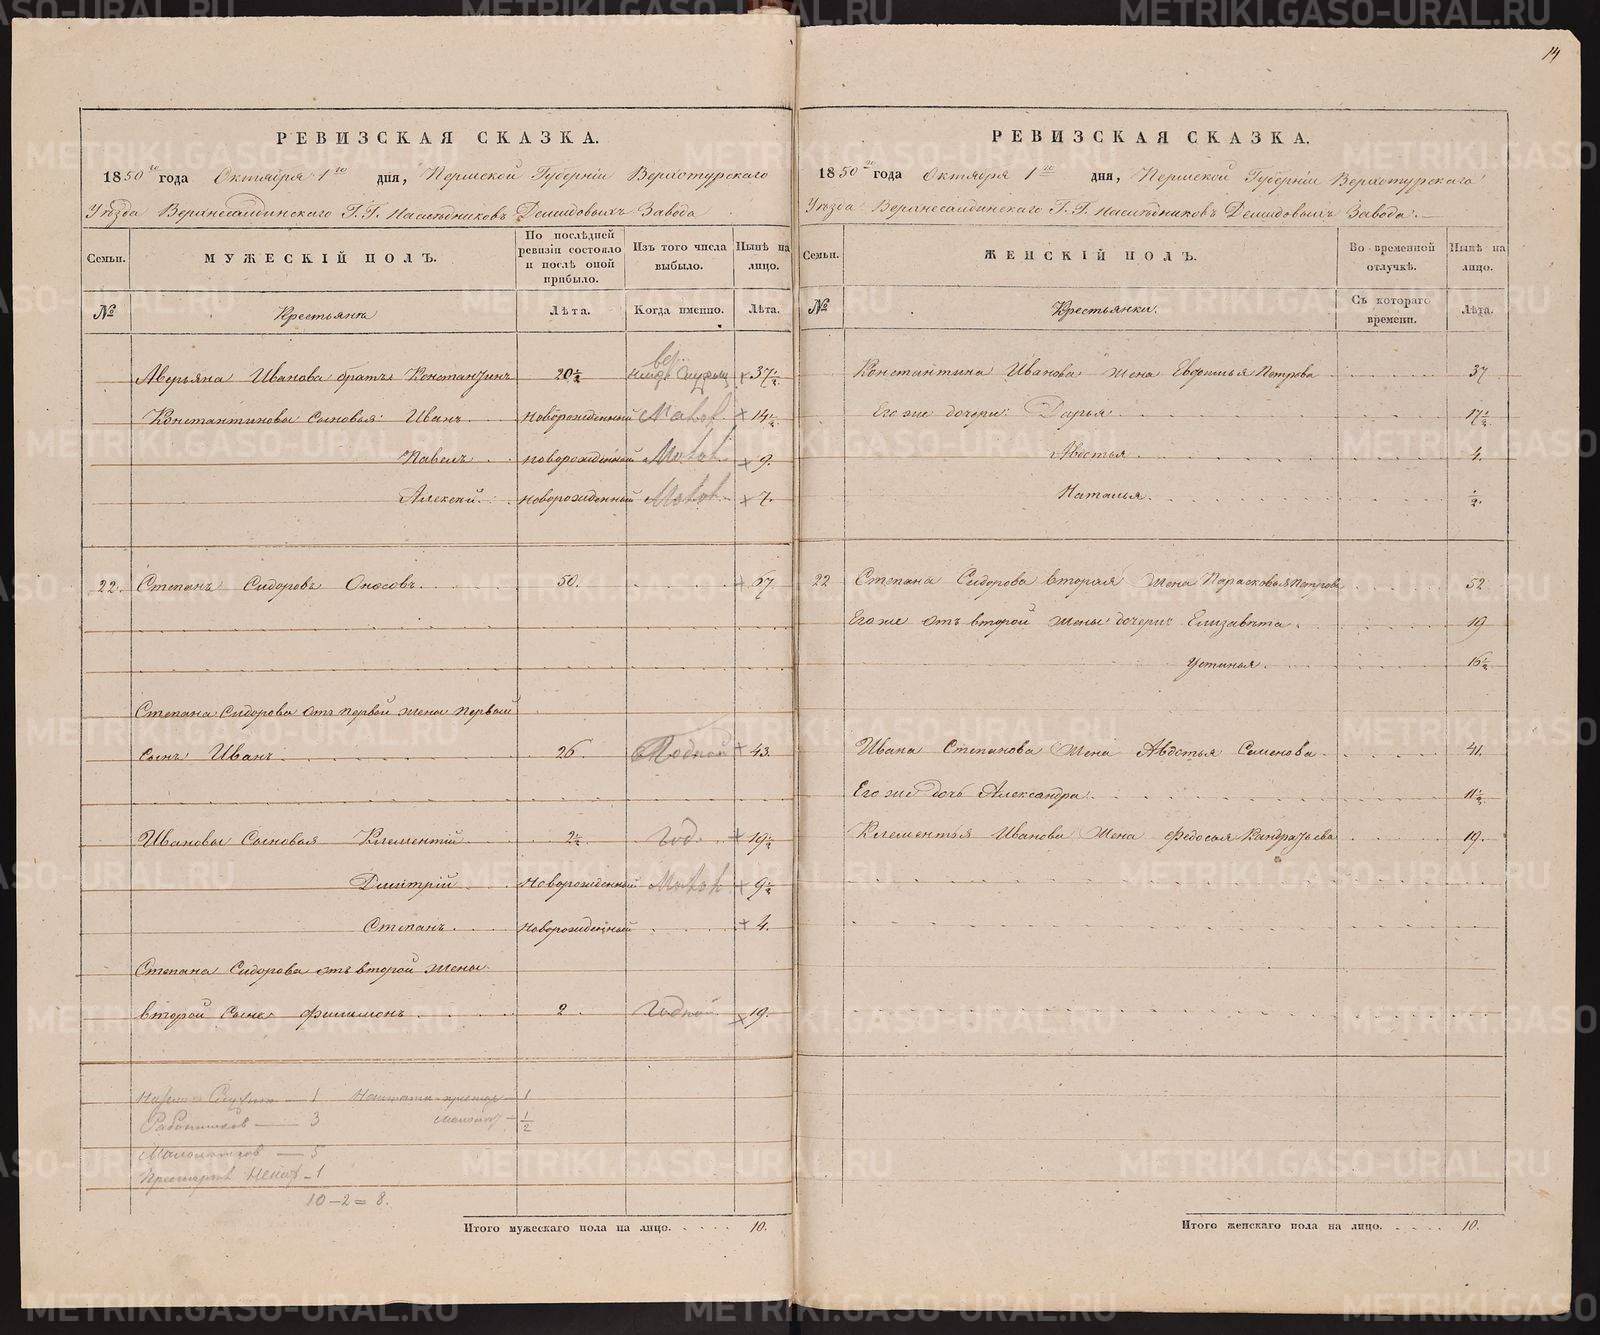 14
РЕВИЗСКАЯ СКАЗКА.
1850го года Октября 1го дня, Пермской Губерніи Верхотурскаго
Уѣзда Верхнесалдинскаго Г.Г. Наслѣдниковъ Демидовыхъ Завода
Семьи.
МУЖЕСКІЙ ПОЛЪ.
По послѣдней ревизіи состояло и послѣ оной прибыло.
Изъ того числа выбыло.
Нынѣ на лицо.
№
Крестьяне
Лѣта.
Когда именно.
Лѣта.
Аверьяна Иванова братъ Константинъ 20½ 37½
Константиновы сыновья: Иванъ новорожденный 14½
Павелъ новорожденный 9.
Алексей новорожденный 7.
22. Степанъ Сидоровъ Оносовъ 50. 67
Степана Сидорова отъ первой жены первый
сынъ Иванъ 26 Годной 43.
Ивановы Сыновья Клементій 2½ год. 19½
Дмитрій Новорожденный 9½
Степанъ Новорожденный 4.
Степана Сидорова отъ второй жены
второй сынъ Филимонъ 2 Годной 19.
1 1
Работников — 3 ½
Малолетков — 5
1
10 – 2 = 8.
Итого мужескаго пола на лицо. 10.
РЕВИЗСКАЯ СКАЗКА.
1850го года Октября 1го дня, Пермской Губерніи Верхотурскаго
Уѣзда Верхнесалдинскаго Г.Г. Наслѣдниковъ Демидовыхъ Завода.
Семьи.
ЖЕНСКІЙ ПОЛЪ.
Во временной отлучкѣ.
Нынѣ на лицо.
№
Крестьянки.
Съ котораго времени.
Лѣта.
Константина Иванова жена Евфимья Петрова 37
Его же дочери: Дарья 17½
Авдотья 4.
Наталья ½.
22 Степана Сидорова вторая жена Парасковья Петрова 52
Его же отъ второй жены дочери: Елизавета 19
Устинья 16½
Ивана Степанова жена Авдотья Семенова 41.
Его же дочь Александра 11½
Клементья Иванова жена Федосья Кандратьева 19.
Итого женскаго пола на лицо. 10.
METRIKI.GASO-URAL.RU